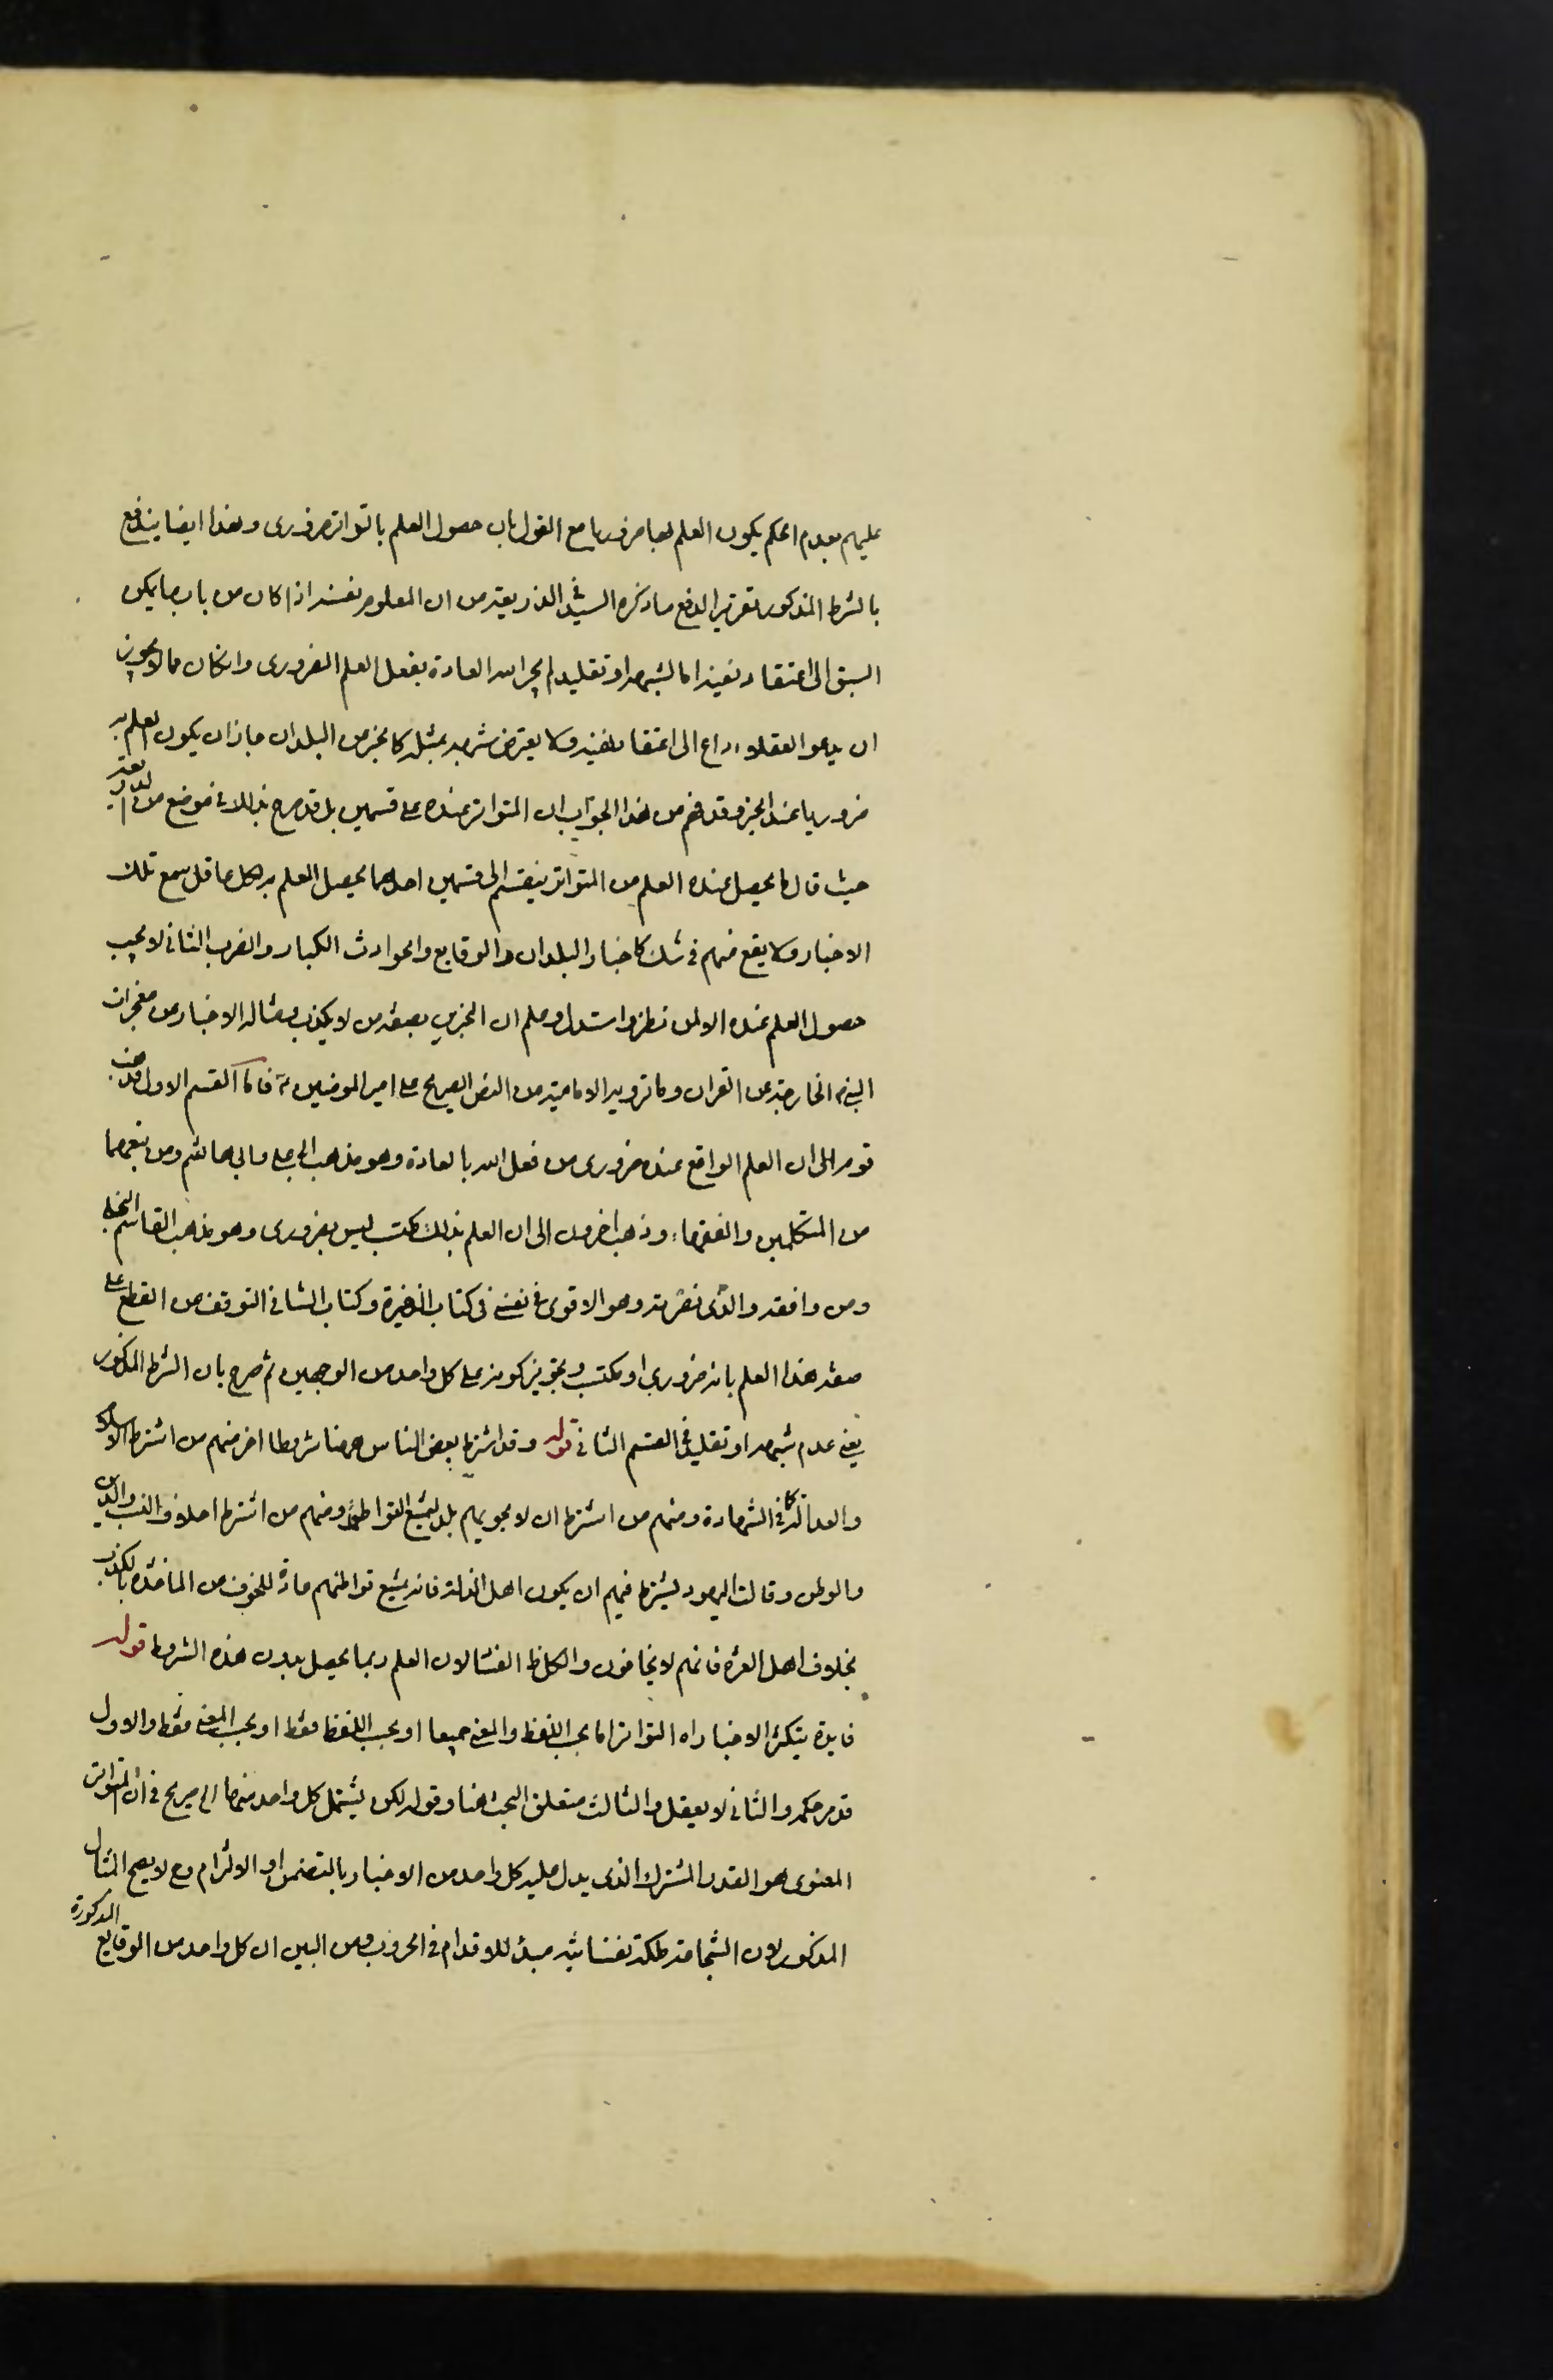 عليهم بعدم الحكم بكون العلم بها ضروريا مع القول بان حصول العلم بالتواتر ضروري وهذا ايضا يندفع
بالشرط المذكور تقرير الدفع ما ذكره السيد في الذريعة من ان المعلوم نفسه اذا كان من باب ما يمكن
السبق الى اعتقاد نفيه اما لشبهه او تقليد لم يجر الله العادة بفعل العلم الضروري وان كان مما لا يجوز
ان يدعو العقلاء داع الى اعتقاد نفيه ولا يعترض شبهه بمثله كالخبر عن البلدان جاز ان يكون العلم به
ضروريا عند الخبر وقد فهم من هذا الجواب ان المتواتر عنده على قسمين بل قد صرح بذلك في موضع من الذريعة
حيث قال ما يحصل عنده العلم من المتواتر ينقسم الى قسمين احدهما يحصل العلم به لكل عاقل يسمع تلك
الاخبار ولا يقع منهم فيه شك كاخبار البلدان والوقايع والحوادث الكبار والضرب الثاني لا يجب
حصول العلم عنده الا لمن نظر واستدل وعلم ان المخبرين بصفة من لا يكذب ومثاله الاخبار عن معجزات
النبي ص الخارجة عن القران وما ترويه الامامية من النص الصريح على امير المومنين ع فاما القسم الاول فذهب
قوم الى ان العلم الواقع عنده ضروري من فعل الله بالعادة وهو مذهب ابي علي وابي هاشم ومن تبعهما
من المتكلمين والفقهاء وذهب اخرون الى ان العلم بذلك مكتسب ليس بضروري وهو مذهب ابي القاسم البلخي
ومن وافقه والذي نصرته وهو الاقوى في نفسي في كتاب الذخيرة وكتاب الشافي التوقف عن القطع على
صفة هذا العلم بانه ضروري او مكتسب وتجويز كونه على كل واحد من الوجهين ثم صرح بان الشرط المذكور
يعني عدم شبهه او تقليد في القسم الثاني قوله وقد اشترط بعض الناس ههنا شروطا اخر فمنهم من اشترط الاسلام
والعدالة كما في الشهادة ومنهم من اشترط ان لا يحويهم بلد ليمتنع التواطؤ ومنهم من اشترط اختلاف النسب والدين
والوطن وقالت اليهود يشترط فيهم ان يكون اهل الذلة فانه يمتنع تواطئهم عادة للخوف من المؤاخذة بالكذب
بخلاف اهل العزة فانهم لا يخافون والكل ظ الفساد لان العلم ربما يحصل بدون هذه الشروط قوله
فايدة يتكثر الاخبار اه التواتر اما بحسب اللفظ والمعنى جميعا او بحسب اللفظ فقط او بحسب المعنى فقط والاول
قد مر حكمه والثاني لا يعقل والثالث متعلق البحث هنا وقوله لكن يشتمل كل واحد منها الى صريح في ان المتواتر
المعنوي هو القدر المشترك الذي يدل عليه كل واحد من الاخبار بالتضمن او الالتزام وح لا يصح المثال
المذكور لان الشجاعة ملكة نفسانية مبدء للاقدام في الحروب ومن البين ان كل واحد من الوقايع المذكورة